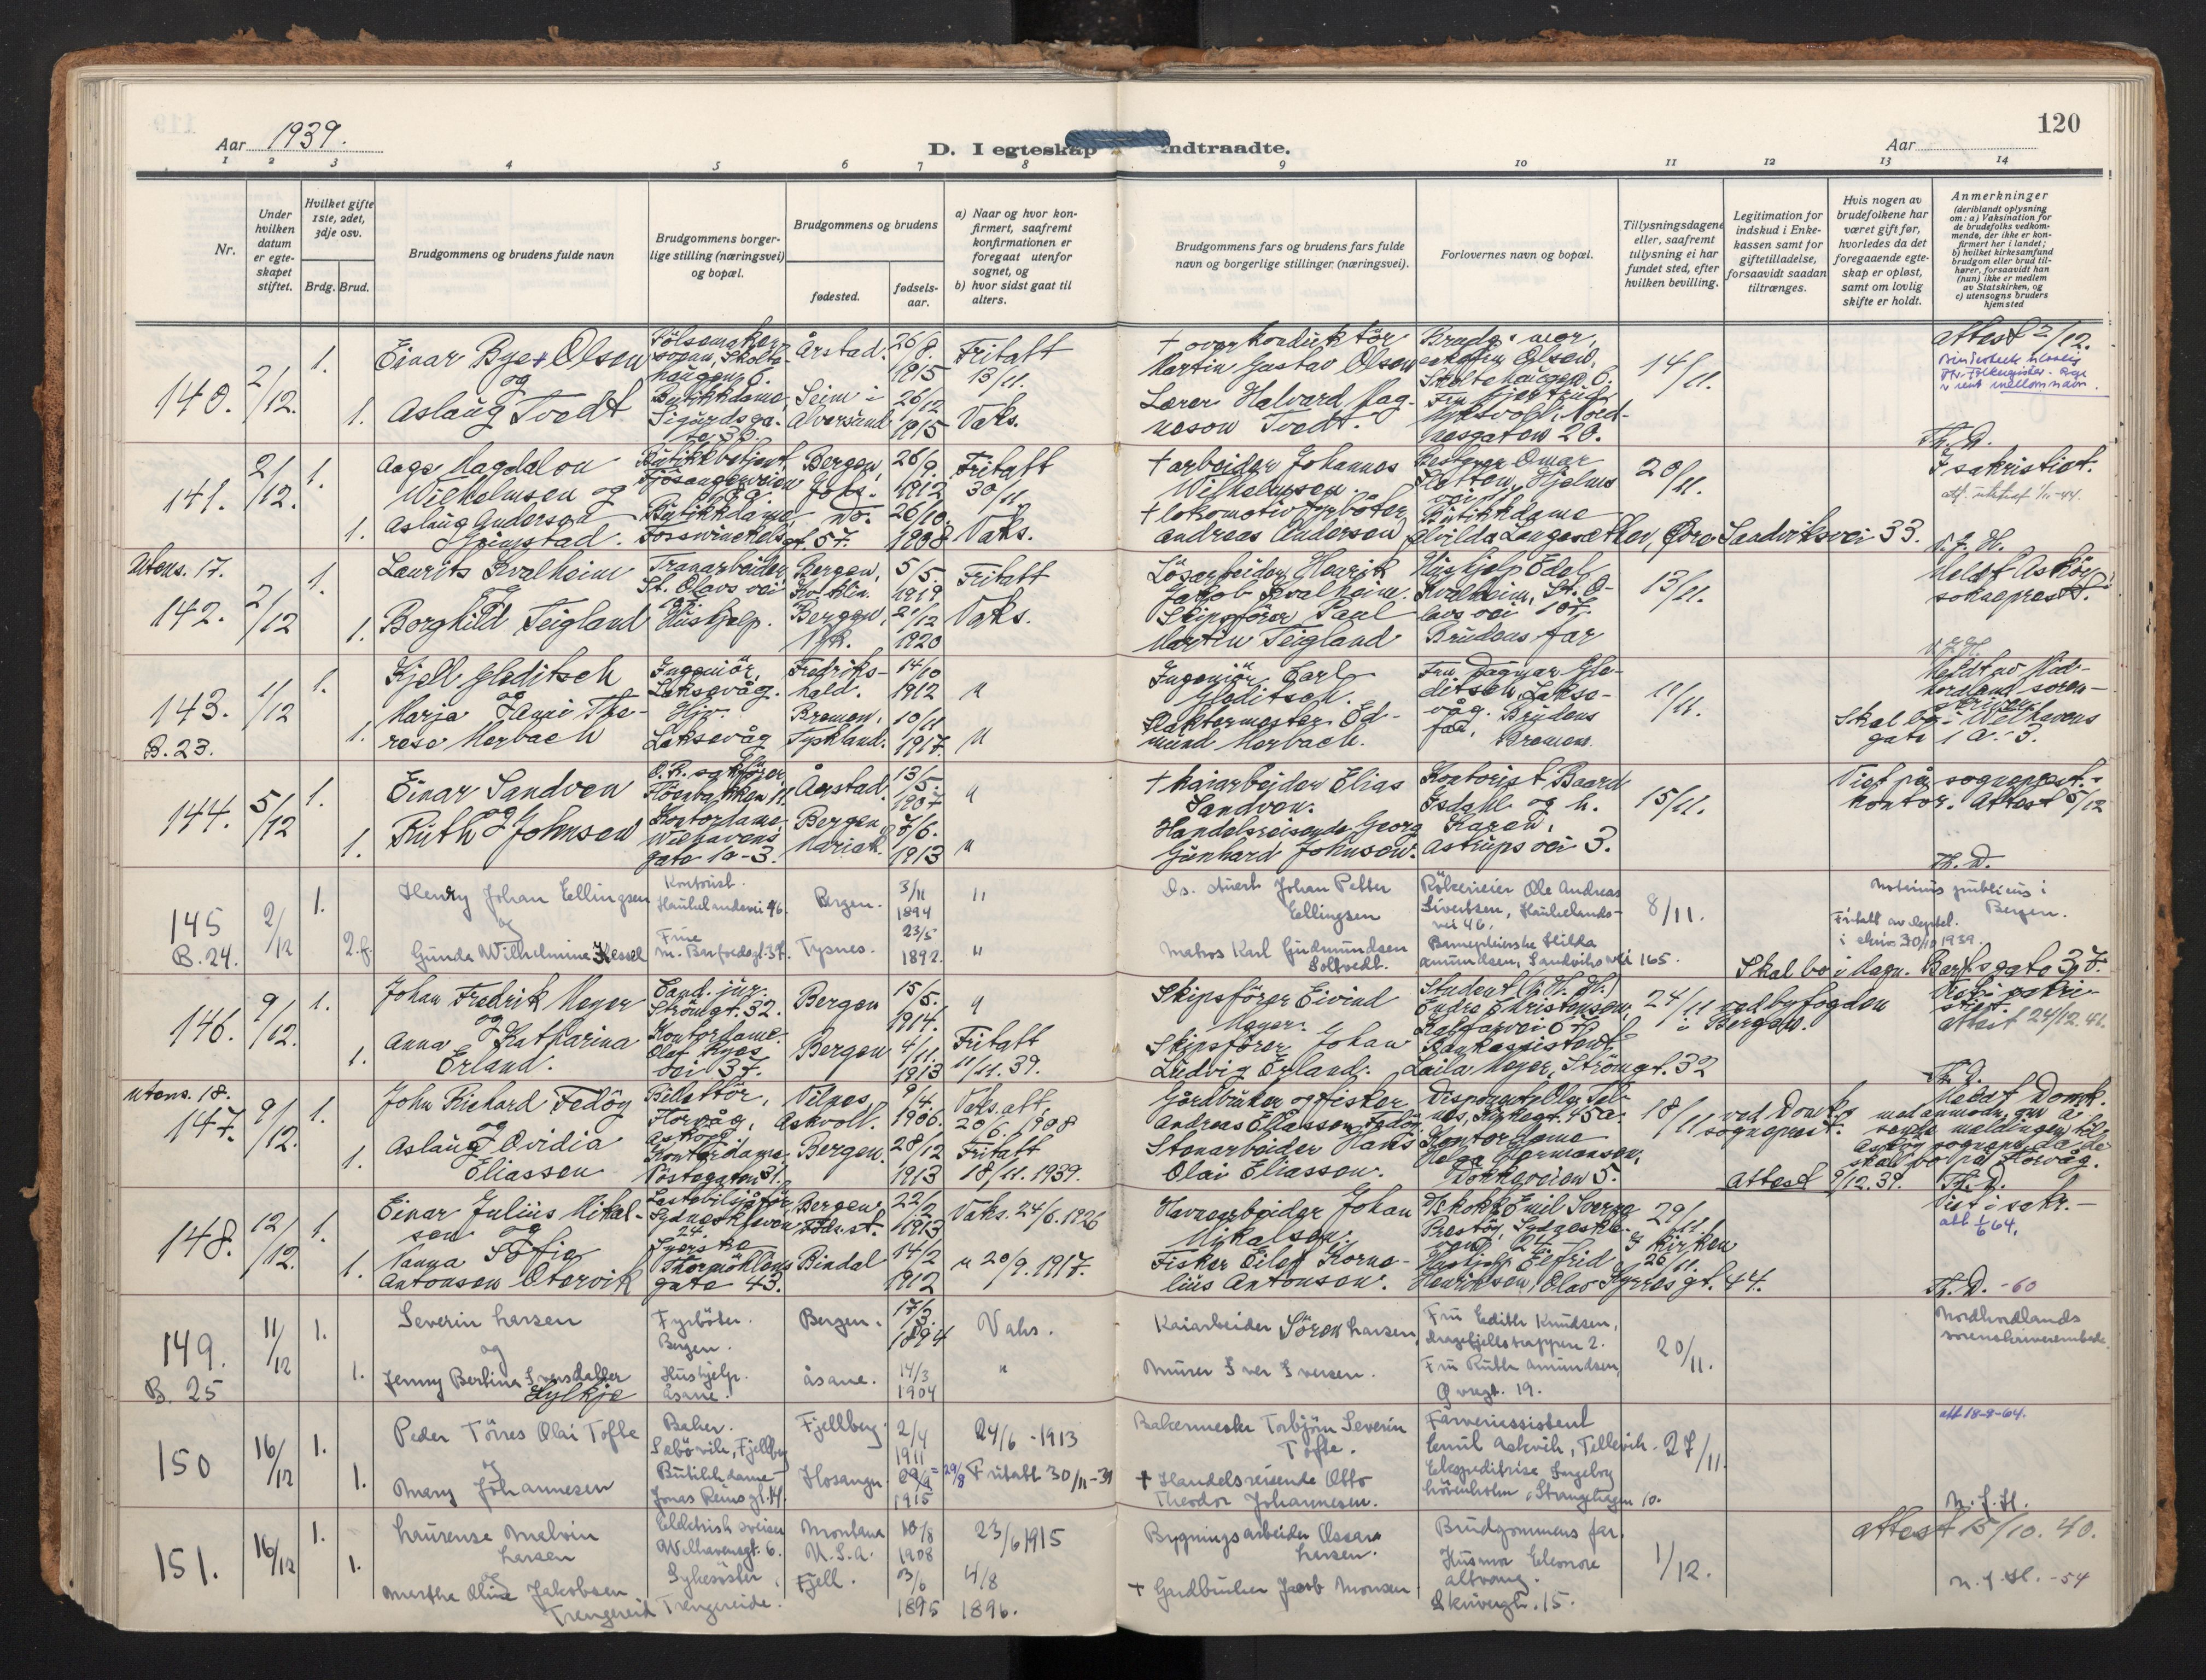 120
Aar 1939.
D. I egteskap indtraadte.
Aar
1 2 3 4 5 6 7 8 9 10 11 12 13 14
Nr.
Under hvilken datum er egteskapet stiftet.
Hvilket gifte 1ste, 2det, 3dje osv.
Brdg. Brud.
Brudgommens og brudens fulde navn
Brudgommens borgerlige stilling (næringsvei) og bopæl.
Brudgommens og brudens
fødested.
fødselsaar.
a) Naar og hvor konfirmert, saafremt konfirmationen er foregaat utenfor sognet, og
b) hvor sidst gaat til alters.
Brudgommens fars og brudens fars fulde navn og borgerlige stillinger (næringsvei).
Forlovernes navn og bopæl.
Tillysningsdagene eller, saafremt tillysning ei har fundet sted, efter hvilken bevilling.
Legitimation for indskud i Enkekassen samt for giftetilladelse, forsaavidt saadan tiltrænges.
Hvis nogen av brudefolkene har været gift før, hvorledes da det foregaaende egteskap er opløst, samt om lovlig skifte er holdt.
Anmerkninger
(deriblandt oplysning om: a) Vaksination for de brudefolks vedkommende, der ikke er konfirmert her i landet;
b) hvilket kirkesamfund brudgom eller brud tilhører, forsaavidt han (hun) ikke er medlem av Statskirken, og
c) utensogns bruders hjemsted
140. 2/12. 1. Einar Bye Olsen og Pölsemaker Årstad. 26/8. 1915 Fritatt 13/11.
+ overkonduktör Martin Gustav Olsen Brudg. mor, Olsen, Skoltehaugen 6. 14/11. Attest 2/12.
1. Aslaug Tvedt Butikkdame, Sigurdsgate Seim i Alversund 26/12 1915 Vaks.
Lærer Halvard Magneson Tvedt. Nordnesgaten 20.
Th. D.
141. 2/12. 1. Aage Magdalon Wilhelmsen og Butikkbetjent, Fjösangerveien Bergen, Joh. 26/9. 1912 Fritatt 30/11.
+ arbeider Johannes Wilhelmsen. Bestyrer Omar Sletten, Hjelms 20/11. I sakristiet.
1. Aslaug Anderson Grimstad. Butikkdame Fosswinckels gt. 57. Do. 26/10. 1908 Vaks.
+ lokomotivfyrböter Andreas Anderson Butikkdame Alvilda Langesæther, Övre Sandviksvei 33.
N. J. H.
Utens. 17.
142. 2/12 1. Laurits Kvalheim Tranarbeider, St. Olavs vei Bergen, Kv. klin. 5/5. 1919 Fritatt
Lösarbeider Henrik Jakob Kvalheim. Hushjelp Edel Kvalheim, St. Olavs vei 107. 13/11. Meldt Asköy sokneprest.
1. Borghild Teigland Hushjelp. Bergen, 21/12 1920 Vaks.
Skipsförer Paul Martin Teigland Brudens far
N. J. H.
143. 1/12 1. Kjell Gleditsch og Ingeniör, Laksevåg. Fredrikshald. 14/10 1912 "
Ingeniör Carl Gleditsch. Fru Dagmar Gleditsch, Laksevåg. 11/11.
B. 23.
1. Marja Janni Therese Merbach Hjv. Laksevåg Bremen, Tyskland. 10/11 1917. "
Edmund Merbach. Brudens far, Bremen.
Skal bo i Welhavens gate 1 a - 3.
144. 5/12 1. Einar Sandven og O.R. sakförer Årstad. 13/5. 1907 "
+ kaiarbeider Elias Sandven. Kontorist Baard Isdahl og h. Karen, Astrups vei 3. 15/11. Viet på sogneprest. kontor. Attest 5/12
1. Ruth Johnson Kontordame, Welhavens gate 1a - 3. Bergen, Mariak. 7/6. 1913 "
Handelsreisende Georg Gunhard Johnson.
Th. D.
145 2/12 1. Henry Johan Ellingsen og Kontorist. Haukelandsvei 46. Bergen. 3/11 1894 "
Ds. stuert Johan Petter Ellingsen Rökemeier Ole Andreas Sivertsen, Haukelandsvei 46. 8/11. Notarius publicus i Bergen.
B. 24. 2. f. Gunda Wilhelmina Kessel Frue M. Barfodsgt. 37. Tysnes. 23/5 1892. "
Matros Karl Gudmundsen Soltvedt. Hilda Amundsen, Sandviksvei 165.
Skal bo i Magn. Barfs gate 37.
146. 9/12. 1. Johan Fredrik Meyer og Cand. jur. Strömgt. 32. Bergen 15/5. 1914. "
Skipsförer Eivind Meyer. Student Endre Christensen, Kalfarvei 24/11 ved byfogden i Bergen. Attest 24/12. 41.
1. Anna Katharina Erland. Kontordame. Olaf Ryes vei 37. Bergen 4/11. 1913 Fritatt 11/11. 39.
Skipsförer Johan Ludvig Erland. Bankassistent Laila Meyer, Strömgt. 32
Th. D.
utens. 18.
147. 9/12. 1. John Richard Fedöy og Billettör, Florvåg, Asköy Vilnes, Askvoll. 9/4. 1906. Vaks. att. 20/6. 1908
Gårdbruker og fisker Andreas Eliassen Fedöy. 18/11 ved Domk. sogneprest. Meldt Domk. med anmodn. om å sende meldingen til Asköy sognepr. da de skal bo på Florvåg.
1. Aslaug Ovidia Eliassen Kontordame. Nöstegaten 31. Bergen. 28/12 1913 Fritatt 18/11. 1939.
Stenarbeider Hans Olai Eliassen. Kontordame Helga Hermansen, Dokkeveien 5. Attest 9/12. 39. Th. D.
148. 12/12. 1. Einar Julius Mikalsen og Lastebilsjåför, Sydneskleven 24. Bergen. 22/2 1913 Vaks. 24/6. 1926
Havnearbeider Johan Mikalsen. Emil Sverre Prestöy, Sydneskleven 24 29/11. I kirken 26/11. Viet i sakr.
1. Nanna Sofie Antonsen Otervik Syerske Thormöhlens gate 43. Bindal 14/2 1912 " 20/9. 1917.
Fisker Eilef Kornelius Antonsen. Hushjelp Eilfrid Henriksen, Olav Kyrres gt. 44.
Th. D. -60
149. 11/12 1. Severin Larsen og Fyrböter. Bergen. Bergen. 17/3. 1894 Vaks.
Kaiarbeider Sören Larsen, Fru Edith Knudsen, Dragefjellstrappen 2. 20/11. Nordhordlands sorenskriverembede.
B. 25 1. Jenny Bertina Iversdatter Hylkje Hushjelp. Åsane. Åsane. 14/3 1904 "
Murer Iver Iversen. Fru Ruth Amundsen, Øvregt. 19.
150 16/12 1. Peder Törres Olai Tofte og Baker. Sæbövik, Fjellberg Fjellberg. 2/4 1911 24/6 - 1913
Bakermester Torbjörn Severin Tofte. Farveriassistent Emil Askvik, Tellevik. 27/11. att 18-8-64.
1. Mary Johannesen Butikkdame Jonas Reinsgt. 14. Hosanger 29/8 1915 Fritatt 30/11-39
+ Handelsreisende Otto Theodor Johannesen. Ekspeditrise Ingeborg Lövenholm, Strangehagen 10.
N. J. H.
151. 16/12 1. Laurense Malvin Larsen og Elektrisk sveiser Welhavensgt. 6. Montana U.S.A. 10/8 1908 23/6 1915
Bygningsarbeider Ossian Larsen. Brudgommens far. 1/12. Attest 15/10. 40.
1. Marthe Oline Jakobsen Trengereid Sykesöster, Trengereide. Fjell. 3/6 1895 4/8 1896.
+ Gardbruker Jacob Monsen Husmor Eleonore Altvang. Skivegt. 15.
N. J. H. -54